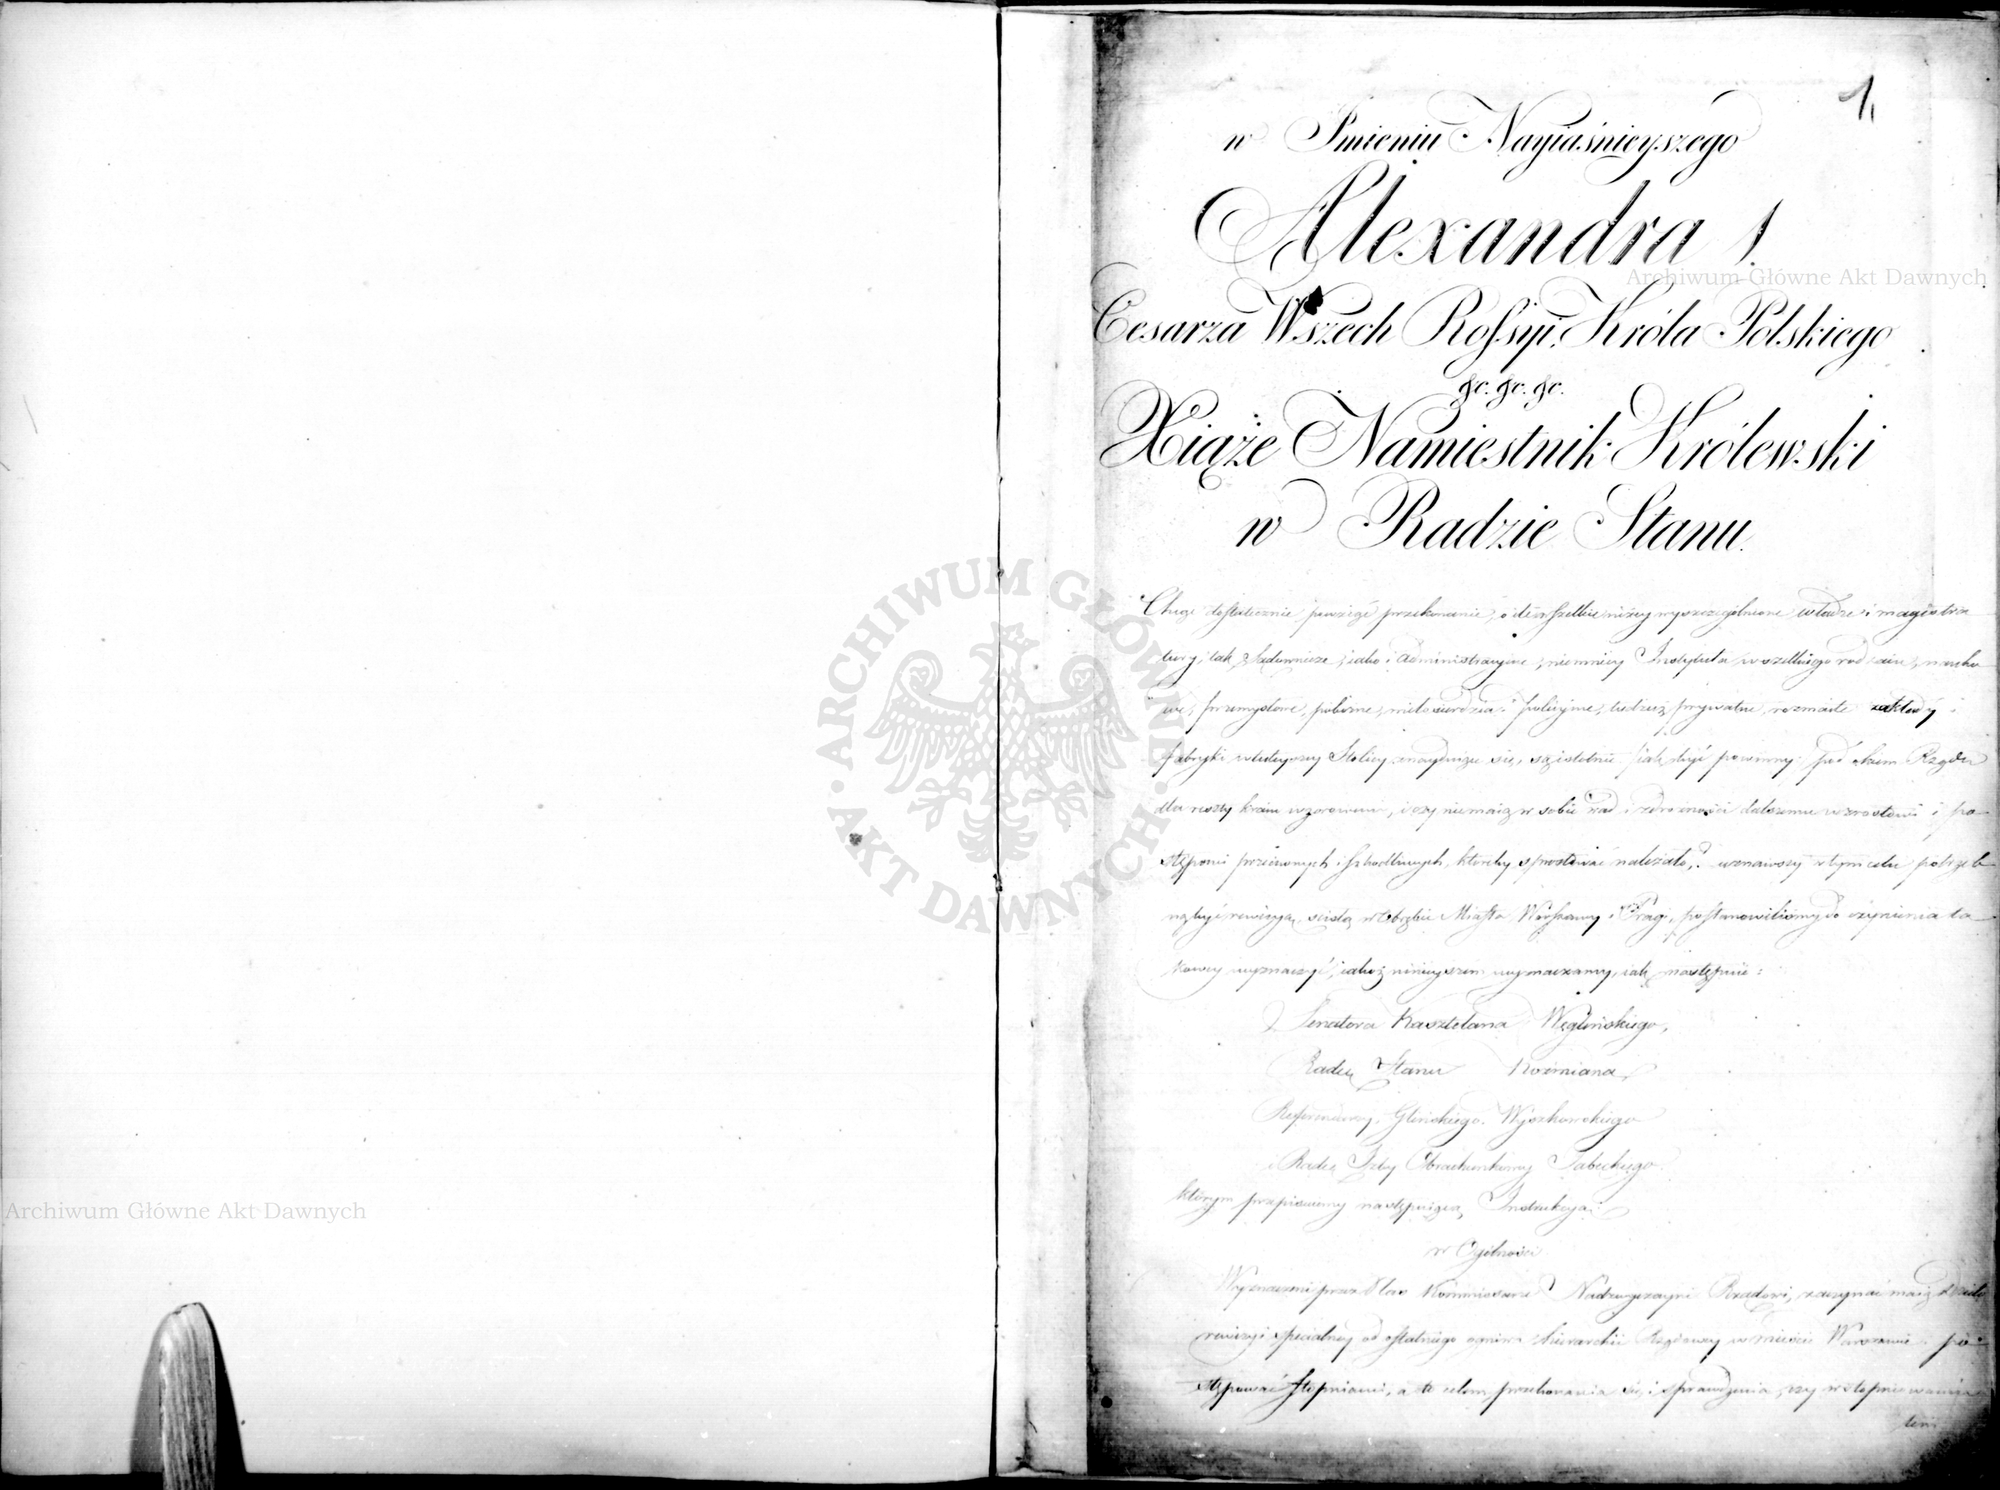 1.
w Imieniu Nayiaśnieyszego
Alexandra I.
Cesarza Wszech Rossyi, Króla Polskiego
&c. &c. &c.
Xiąże Namiestnik Królewski
w Radzie Stanu.
Chcąc dostatecznie powziąć przekonanie, o ile wszelkie niżey wyszczególnione władze i magistra
tury, tak Sądownicze, iako i administracyine, niemniey Instytuta wszelkiego rodzaiu, nauko
we, przemysłowe, pobożne, miłosierdzia i policyine, tudzież prywatne, rozmaite zakłady i
fabryki w tuteyszey Stolicy znayduiące się, są istotnie iak być powinny pod okiem Rządu
dla reszty kraiu wzorowemi, i czy nie maią w sobie wad i zdrożności dalszemu wzrostowi i po
stępowi przeciwnych i szkodliwych, któreby sprostować należało, uznawszy w tym celu potrzeb
ną być rewizyą ścisłą w Obrębie Miasta Warszawy i Pragi, postanowiliśmy do czynienia ta
kowey wyznaczyć, iakoż ninieyszem wyznaczamy, iak następuie:
Senatora Kasztelana Węglińskiego,
Radcę Stanu Koźmiana,
Referendarzy, Glińskiego, Wyszkowskiego
i Radcę Izby Obrachunkowey
którym przepisuiemy następuiącą Instrukcyą:
w Ogólności
Wyznaczeni przez Nas Kommissarze Nadzwyczayni Rządowi, zaczynać maią
rewizyi specialney od ostatniego ogniwa hierarchii Rządowey w mieście Warszawie i po
stępować stopniami, a to celem przekonania się i sprawdzenia, czy w stopniowaniu
tem
ARCHIWUM GŁÓWNE AKT DAWNYCH
Archiwum Główne Akt Dawnych
Archiwum Główne Akt Dawnych